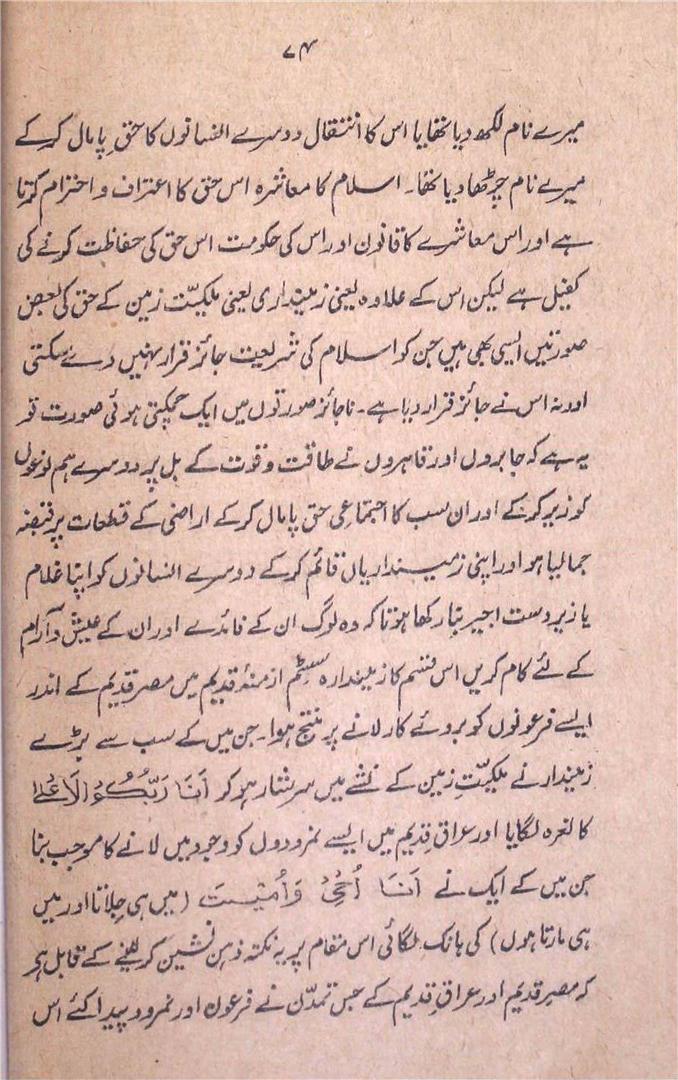 ۷۴
میرے نام لکھ دیا تھا یا اس کا انتقال دوسرے انسانوں کا حق پامال کر کے
میرے نام چڑھا دیا تھا۔ اسلام کا معاشرہ اس حق کا اعتراف و احترام کرتا
ہے اور اس معاشرے کا قانون اور اس کی حکومت اس حق کی حفاظت کرنے کی
کفیل ہے لیکن اس کے علاوہ یعنی زمینداری یعنی ملکیّت زمین کے حق کی بعض
صورتیں ایسی بھی ہیں جن کو اسلام کی شریعت جائز قرار نہیں دے سکتی
اور نہ اس نے جائز قرار دیا ہے۔ ناجائز صورتوں میں ایک چمکتی ہوئی صورت تو
یہ ہے کہ جابروں اور قاہروں نے طاقت و قوت کے بل پر دوسرے ہم نوعوں
کو زیر کر کے اور ان سب کا اجتماعی حق پامال کر کے اراضی کے قطعات پر قبضہ
جما لیا ہو اور اپنی زمینداریاں قائم کر کے دوسرے انسانوں کو اپنا غلام
یا زیردست اجیر بنا رکھا ہو تا کہ وہ لوگ ان کے فائدے اور ان کے عیش و آرام
کے لئے کام کریں اس قسم کا زمیندارہ سسٹم ازمنۂ قدیم میں مصر قدیم کے اندر
ایسے فرعونوں کو بروئے کار لانے پر منتج ہوا۔ جن میں کے سب سے بڑے
زمیندار نے ملکیّتِ زمین کے نشے میں سرشار ہو کر اَنَا رَبُّكُمُ الْاَعْلٰے
کا نعرہ لگایا اور عراق قدیم میں ایسے نمرودوں کو وجود میں لانے کا موجب بنا
جن میں کے ایک نے اَنَا اُحْیٖ وَاُمِیْت (میں ہی جِلاتا اور میں
ہی مارتا ہوں) کی ہانک لگائی اس مقام پر یہ نکتہ ذہن نشین کر لینے کے قابل ہے
کہ مصر قدیم اور عراق قدیم کے جس تمدّن نے فرعون اور نمرود پیدا کئے اس